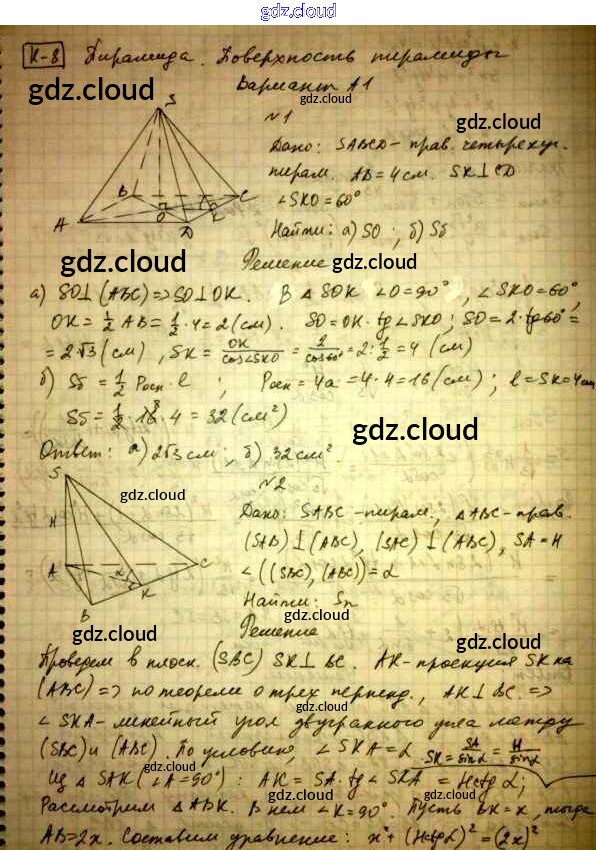 gdz.cloud
К-8 Пирамида. Поверхность пирамиды
Вариант А1
gdz.cloud
gdz.cloud
S
B
C
A
O
D
K
№1
gdz.cloud
Дано: SABCD – прав. четырехуг.
пирам. AB = 4 см. SK ⊥ CD
gdz.cloud
∠SKO = 60°
gdz.cloud
Найти: а) SO ; б) Sб
gdz.cloud
Решение
а) SO ⊥ (ABC) => SO ⊥ OK. В △ SOK ∠O = 90°, ∠SKO = 60°,
OK = 1/2 AB = 1/2 · 4 = 2 (см). SO = OK · tg ∠SKO ; SO = 2 · tg 60° =
= 2√3 (см), SK = OK/cos∠SKO = 2/cos 60° = 2 : 1/2 = 4 (см)
б) Sб = 1/2 Pосн · l ; Pосн = 4a = 4 · 4 = 16 (см) ; l = SK = 4 см
Sб = 1/2 · 16 · 4 = 32 (см²)
gdz.cloud
Ответ: а) 2√3 см ; б) 32 см².
№2
S
H
A
C
α
K
B
gdz.cloud
gdz.cloud
Дано: SABC – пирам., △ABC – прав.
(SAB) ⊥ (ABC), (SAC) ⊥ (ABC), SA = H
gdz.cloud
∠((SBC), (ABC)) = α
Найти: Sп
gdz.cloud
gdz.cloud
Решение
gdz.cloud
Проведем в плоск. (SBC) SK ⊥ BC. AK – проекция SK на
(ABC) => по теореме о трех перпенд., AK ⊥ BC =>
gdz.cloud
∠SKA – линейный угол двугранного угла между
gdz.cloud
gdz.cloud
(SBC) и (ABC). По условию, ∠SKA = α SK = SA/sinα = H/sinα
gdz.cloud
Из △ SAK (∠A = 90°) : AK = SA · tg ∠SKA = H ctg α ;
Рассмотрим △ ABK. В нем ∠K = 90°. Пусть BK = x, тогда
gdz.cloud
gdz.cloud
AB = 2x. Составим уравнение: x² + (H ctg α)² = (2x)²